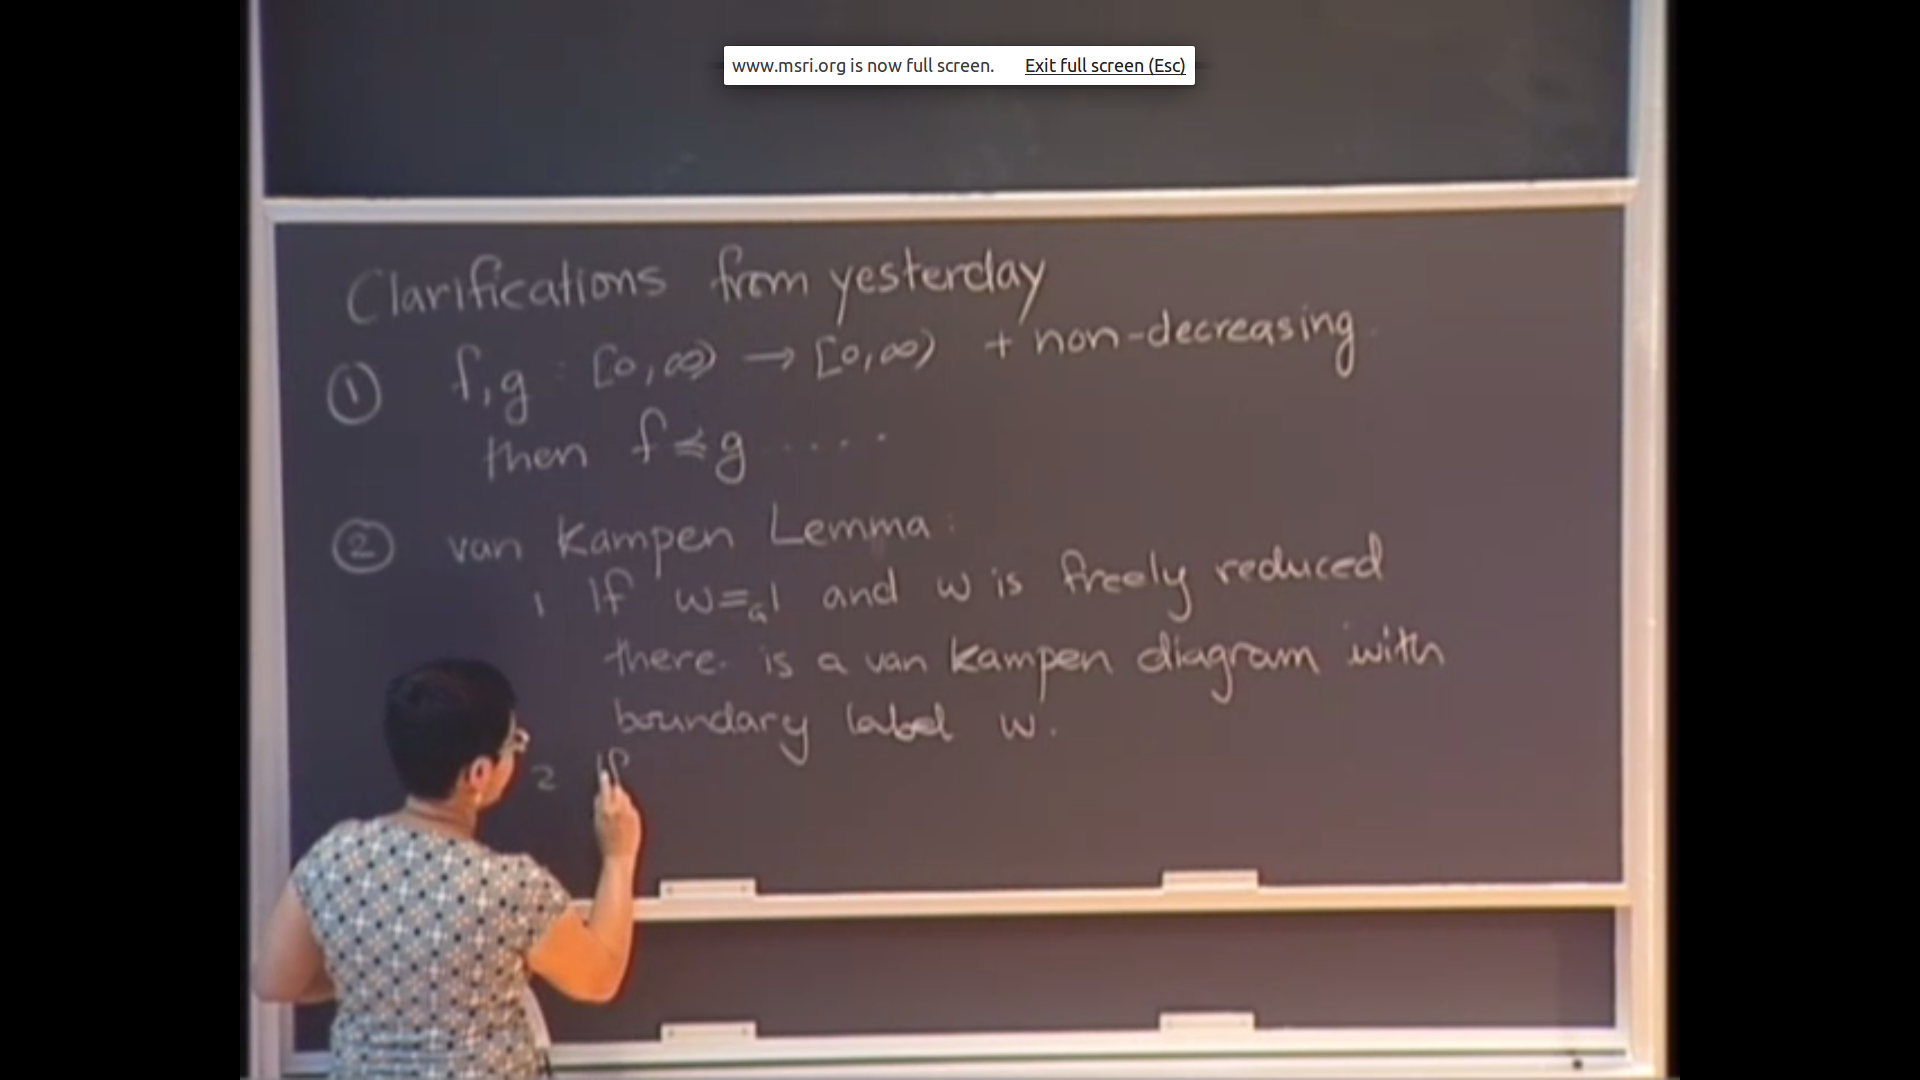 www.msri.org is now full screen. Exit full screen (Esc)
Clarifications from yesterday
① f, g : [0, ∞) → [0, ∞) + non-decreasing
then f ≼ g ....
② van Kampen Lemma:
1 If w =_G 1 and w is freely reduced
there is a van Kampen diagram with
boundary label w.
2 If